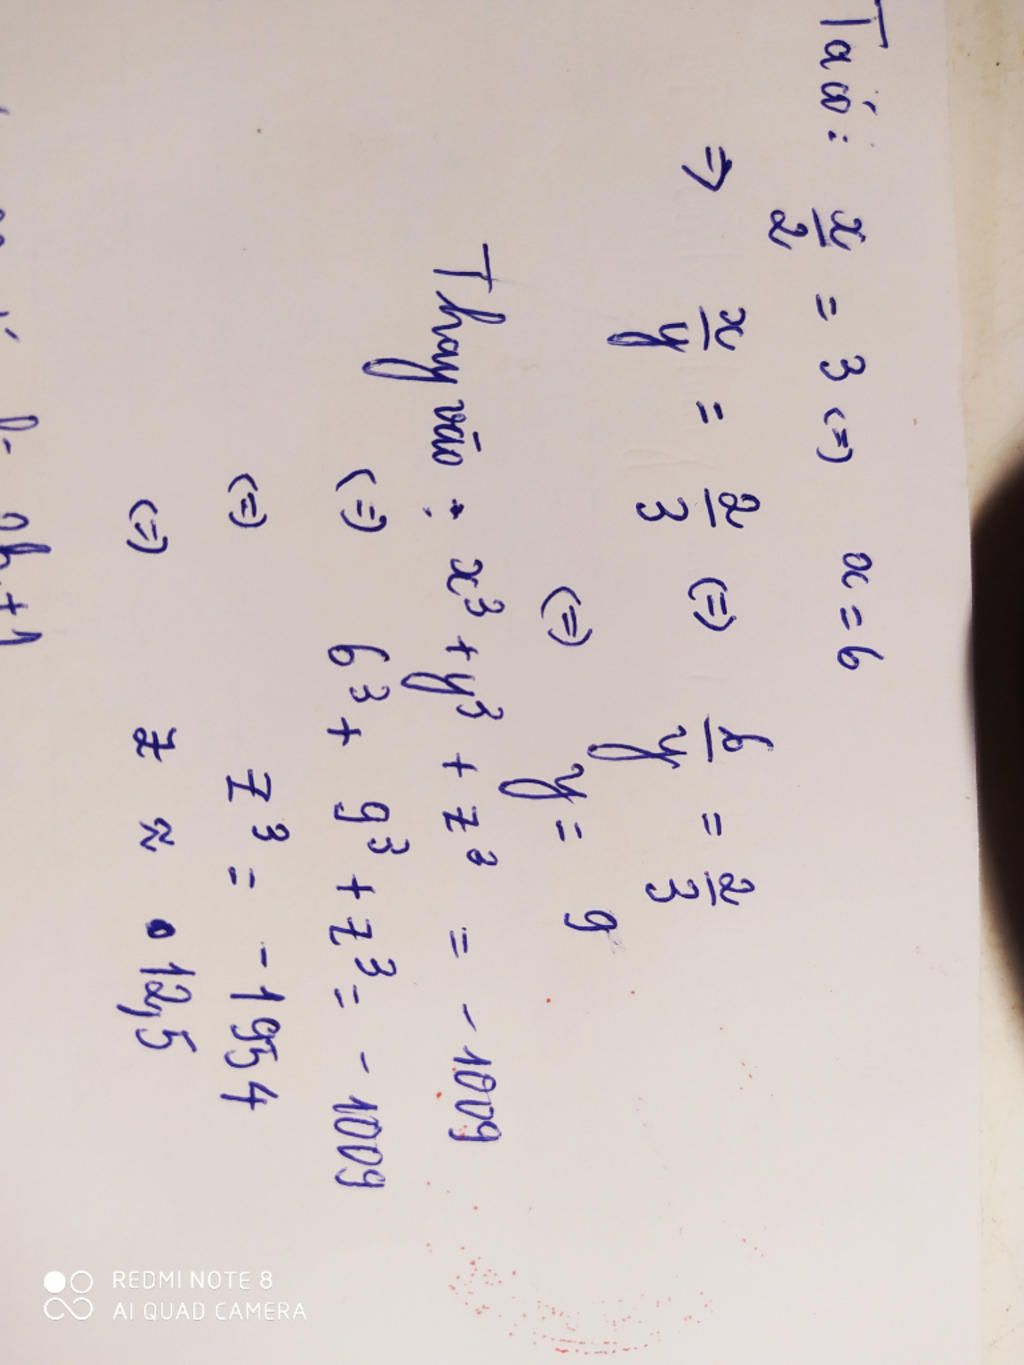 Ta có: x/2 = 3 (=) x = 6
=> x/y = 2/3 (=) 6/y = 2/3
(=) y = 9
Thay vào : x³ + y³ + z³ = -1009
(=) 6³ + 9³ + z³ = -1009
(=) z³ = -1954
(=) z ≈ 12,5
+1
REDMI NOTE 8
AI QUAD CAMERA